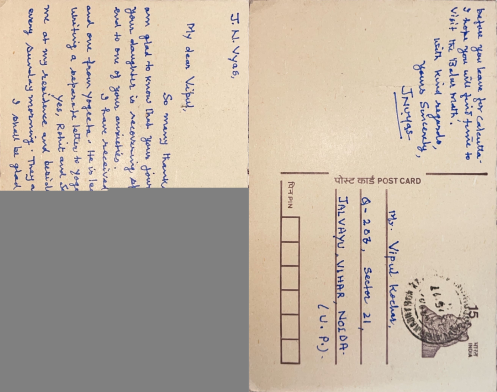 J. N. Vyas,
My dear Vipul,
So many thank
am glad to know that your jour
your daughter is recovering
end to one of your anxieties.
I have received
and one from Yogeeta. He is
writing a separate letter to Yoge
Yes, Rohit and
me at my residence and besid
every Sunday morning. They a
I shall be glad
before you leave for Calcutta.
I hope you will find time to
visit the Belur Math.
With kind regards,
Yours Sincerely,
J.N.Vyas
पोस्ट कार्ड POST CARD
Mr. Vipul Kochar,
G-203, Sector 21,
JALVAYU VIHAR, NOIDA.
(U. P.)
पिन PIN
15
भारत
INDIA